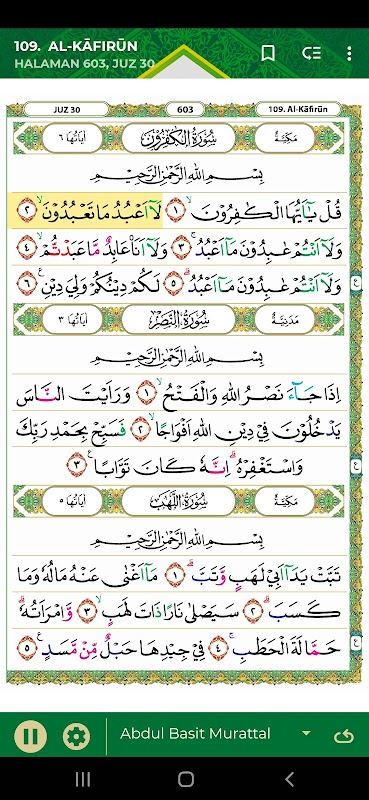 109. AL-KĀFIRŪN
HALAMAN 603, JUZ 30
JUZ 30
603
109. Al-Kāfirūn
مَكِّيَّةٌ
سُوْرَةُ الْكٰفِرُوْنَ
اٰيَاتُهَا ٦
بِسْمِ اللهِ الرَّحْمٰنِ الرَّحِيْمِ
قُلْ يٰٓاَيُّهَا الْكٰفِرُوْنَۙ ١ لَآ اَعْبُدُ مَا تَعْبُدُوْنَۙ ٢
وَلَآ اَنْتُمْ عٰبِدُوْنَ مَآ اَعْبُدُۚ ٣ وَلَآ اَنَا۠ عَابِدٌ مَّا عَبَدْتُّمْۙ ٤
وَلَآ اَنْتُمْ عٰبِدُوْنَ مَآ اَعْبُدُۗ ٥ لَكُمْ دِيْنُكُمْ وَلِيَ دِيْنِ ࣖ ٦
ع
مَدَنِيَّةٌ
سُوْرَةُ النَّصْرِ
اٰيَاتُهَا ٣
بِسْمِ اللهِ الرَّحْمٰنِ الرَّحِيْمِ
اِذَا جَاۤءَ نَصْرُ اللهِ وَالْفَتْحُۙ ١ وَرَاَيْتَ النَّاسَ
يَدْخُلُوْنَ فِيْ دِيْنِ اللهِ اَفْوَاجًاۙ ٢ فَسَبِّحْ بِحَمْدِ رَبِّكَ
وَاسْتَغْفِرْهُۗ اِنَّهٗ كَانَ تَوَّابًا ࣖ ٣
ع
مَكِّيَّةٌ
سُوْرَةُ اللَّهَبِ
اٰيَاتُهَا ٥
بِسْمِ اللهِ الرَّحْمٰنِ الرَّحِيْمِ
تَبَّتْ يَدَآ اَبِيْ لَهَبٍ وَّتَبَّۗ ١ مَآ اَغْنٰى عَنْهُ مَالُهٗ وَمَا
كَسَبَۗ ٢ سَيَصْلٰى نَارًا ذَاتَ لَهَبٍۙ ٣ وَّامْرَاَتُهٗۗ
حَمَّالَةَ الْحَطَبِۚ ٤ فِيْ جِيْدِهَا حَبْلٌ مِّنْ مَّسَدٍ ࣖ ٥
ع
Abdul Basit Murattal